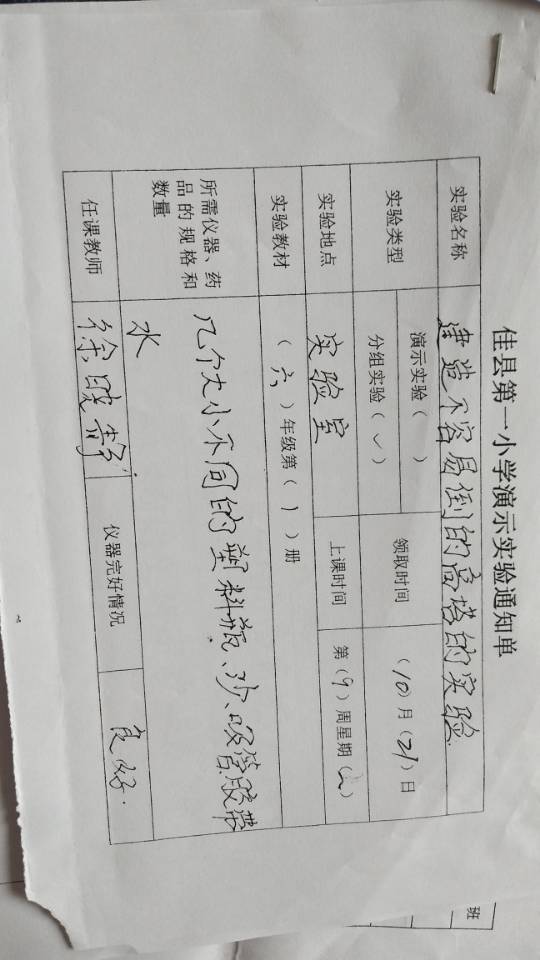 佳县第一小学演示实验通知单
实验名称 建造不容易倒的高塔的实验
实验类型 演示实验（ ） 领取时间 （10）月（21）日
分组实验（✓）
实验地点 实验室 上课时间 第（9）周星期（三）
实验教材 （六）年级第（1）册
所需仪器、药 几个大小不同的塑料瓶、沙、吸管胶带
品的规格和 水
数量
任课教师 徐晓 仪器完好情况 良好.
班